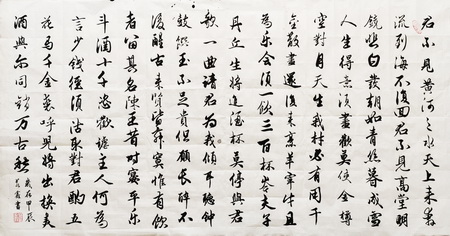 君不見黃河之水天上来奔
流到海不復回君不見高堂明
鏡悲白髮朝如青絲暮成雪
人生得意須盡歡莫使金樽
空對月天生我材必有用千
金散盡還復来烹羊宰牛且
為樂會須一飲三百杯岑夫子
丹丘生將進酒杯莫停與君
歌一曲請君為我傾耳聽鐘
鼓饌玉不足貴但願長醉不
復醒古来聖賢皆寂寞惟有飲
者留其名陳王昔时宴平樂
斗酒十千恣歡謔主人何為
言少錢徑須沽取對君酌五
花馬千金裘呼兒將出換美
酒與尔同銷万古愁
歲在甲辰
書